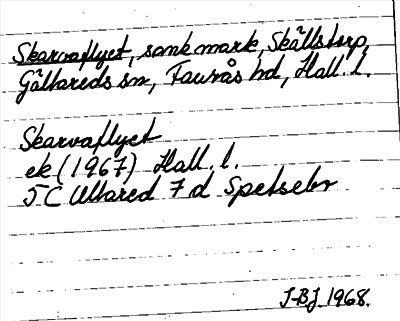 Skarvaflyet, sank mark, Skällstorp,
Gällareds sn, Faurås hd, Hall. l.
Skarvaflyet
ek (1967) Hall. l.
5C Ullared 7 d Spetsebr
J-BJ 1968.